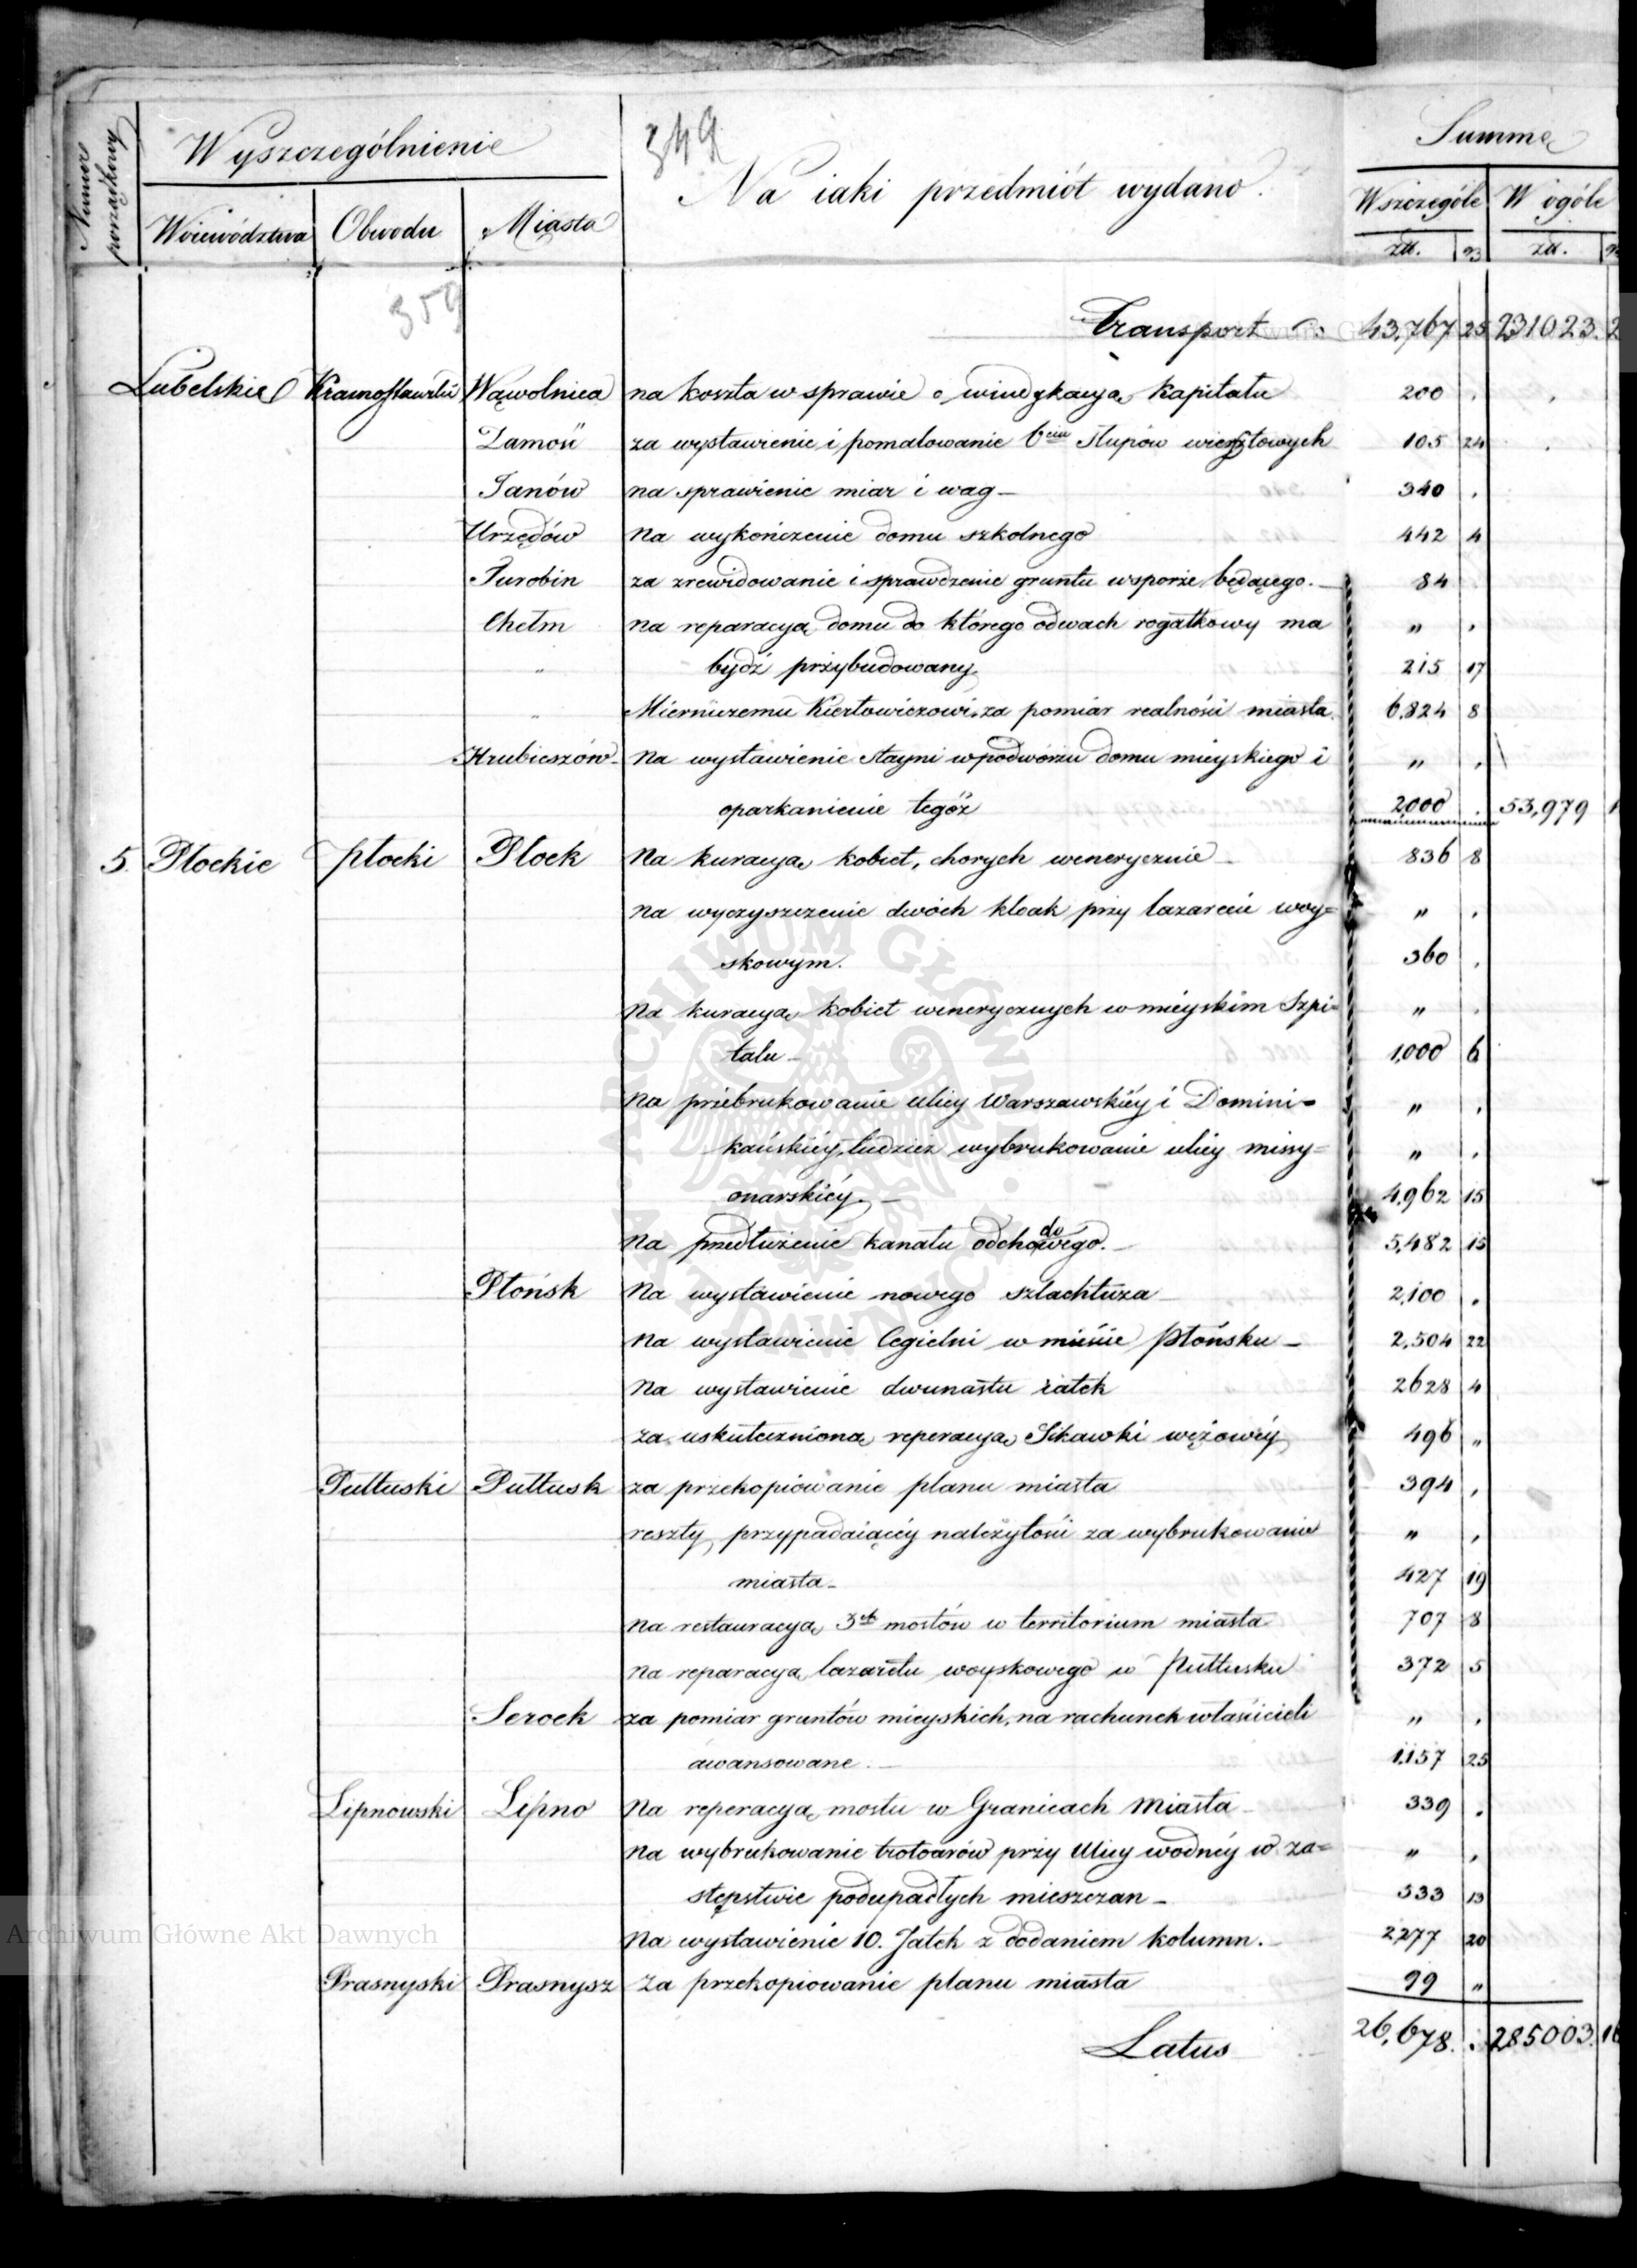 Numer porządkowy
Wyszczególnienie
349
Summa
Na iaki przedmiót wydano.
Wszczególe W ogóle
Woiewództwa Obwodu Miasta
zł. gr zł.
359
Transport 43,767 25 231023. 2
Lubelskie Krasnostawski Wąwolnica na koszta w sprawie o windykacyą Kapitału 200
Zamość za wystawienie i pomalowanie 6ciu słupów wierstowych 105 24
Janów na sprawienie miar i wag 340
Urzędów Na wykończenie domu szkolnego 442 4
Turobin za zrewidowanie i sprawdzenie gruntu wsporze będącego. 84
Chełm Na reparacyą domu do którego odwach rogatkowy ma "
" bydź przybudowany. 215 17
" Mierniczemu Kiertowiczowi za pomiar realności miasta 6,824 8
Hrubieszów Na wystawienie stayni w podwórzu domu mieyskiego i "
oparkanienie tegóż 2000 53,979 1
5. Płockie płocki Płock Na kuracyą kobiet, chorych wenerycznie 836 8
Na wyczyszczenie dwóch kloak przy lazarecie woy= "
skowym. 360
Na kuracyą kobiet wenerycznych w mieyskim Szpi= "
talu 1,000 6
Na przebrukowanie ulicy Warszawskiéy i Domini= "
kańskiéy, tudzież wybrukowanie ulicy missy= "
onarskiéy. 4,962 15
Na przedłużenie kanału odchodowego. 5,482 15
Płońsk Na wystawienie nowego szlachtuza 2,100
Na wystawienie Cegielni w mieście Płońsku 2,504 22
Na wystawienie dwunastu iatek 2628 4
za uskutecznioną reperacyą Sikawki wężowéy 496 "
Pułtuski Pułtusk za przekopiowanie planu miasta 394
reszty przypadaiącéy należytości za wybrukowanie "
miasta 427 19
Na restauracyą 3ch mostów w territorium miasta 707 8
Na reparacyą lazaretu woyskowego w Pułtusku 372 5
Serock za pomiar gruntów mieyskich, na rachunek właścicieli "
awansowane. 1,157 25
Lipnowski Lipno Na reperacyą mostu w Granicach Miasta 339
Na wybrukowanie trotoarów przy Ulicy wodnéy w za= "
stępstwie podupadłych mieszczan 533 13
Na wystawienie 10. Jatek z dodaniem kolumn. 2,277 20
Prasnyski Prasnysz Za przekopiowanie planu miasta 99 "
Latus 26,678. 285003. 16
ARCHIWUM GŁÓWNE AKT DAWNYCH
Archiwum Główne Akt Dawnych